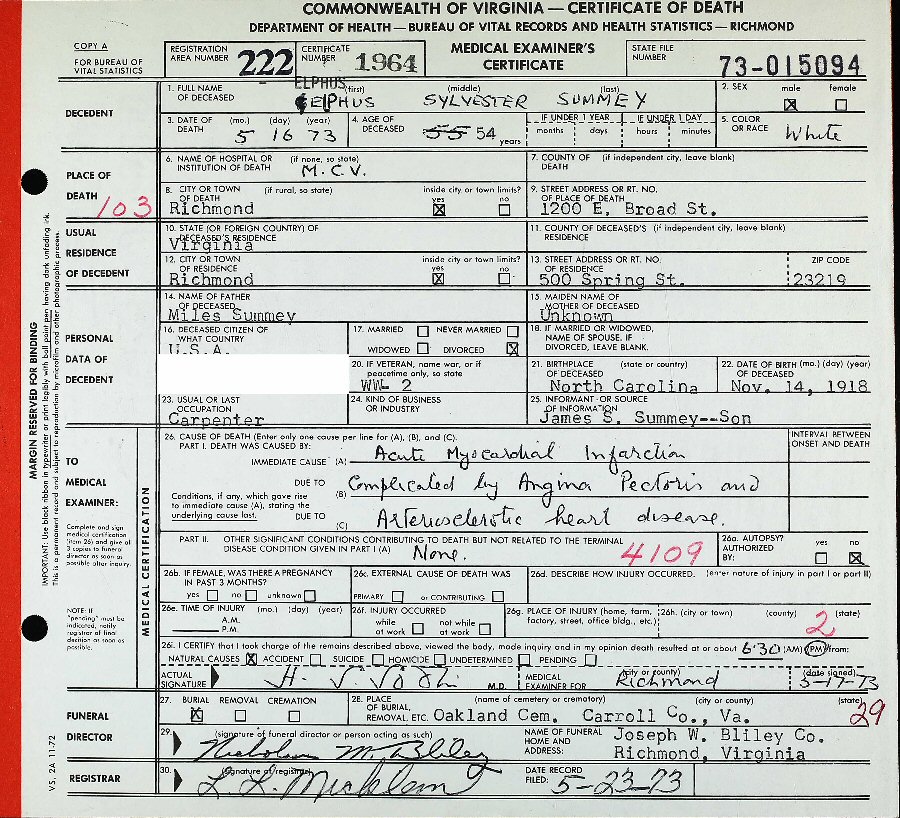 COMMONWEALTH OF VIRGINIA — CERTIFICATE OF DEATH
DEPARTMENT OF HEALTH — BUREAU OF VITAL RECORDS AND HEALTH STATISTICS — RICHMOND
COPY A
FOR BUREAU OF VITAL STATISTICS
REGISTRATION AREA NUMBER 222
CERTIFICATE NUMBER 1964
MEDICAL EXAMINER'S CERTIFICATE
STATE FILE NUMBER 73-015094
DECEDENT
1. FULL NAME OF DECEASED (first) (middle) (last)
ELPHUS
ELPHUS SYLVESTER SUMMEY
2. SEX male X female
3. DATE OF DEATH (mo.) (day) (year)
5 16 73
4. AGE OF DECEASED 55 54 years
IF UNDER 1 YEAR months days
IF UNDER 1 DAY hours minutes
5. COLOR OR RACE White
PLACE OF DEATH
103
6. NAME OF HOSPITAL OR INSTITUTION OF DEATH (if none, so state)
M.C.V.
7. COUNTY OF DEATH (if independent city, leave blank)
8. CITY OR TOWN OF DEATH (if rural, so state)
Richmond
inside city or town limits? yes X no
9. STREET ADDRESS OR RT. NO. OF PLACE OF DEATH
1200 E. Broad St.
USUAL RESIDENCE OF DECEDENT
10. STATE (OR FOREIGN COUNTRY) OF DECEASED'S RESIDENCE
Virginia
11. COUNTY OF DECEASED'S RESIDENCE (if independent city, leave blank)
12. CITY OR TOWN OF RESIDENCE
Richmond
inside city or town limits? yes X no
13. STREET ADDRESS OR RT. NO. OF RESIDENCE
500 Spring St.
ZIP CODE
23219
PERSONAL DATA OF DECEDENT
14. NAME OF FATHER OF DECEASED
Miles Summey
15. MAIDEN NAME OF MOTHER OF DECEASED
Unknown
16. DECEASED CITIZEN OF WHAT COUNTRY
U.S.A.
17. MARRIED NEVER MARRIED
WIDOWED DIVORCED X
18. IF MARRIED OR WIDOWED, NAME OF SPOUSE. IF DIVORCED, LEAVE BLANK.
20. IF VETERAN, name war, or if peacetime only, so state
WW- 2
21. BIRTHPLACE OF DECEASED (state or country)
North Carolina
22. DATE OF BIRTH (mo.) (day) (year) OF DECEASED
Nov. 14, 1918
23. USUAL OR LAST OCCUPATION
Carpenter
24. KIND OF BUSINESS OR INDUSTRY
25. INFORMANT - OR SOURCE OF INFORMATION
James S. Summey--Son
TO MEDICAL EXAMINER:
Complete and sign medical certification (item 26) and give all 3 copies to funeral director as soon as possible after inquiry.
NOTE: If "pending" must be indicated, notify registrar of final decision as soon as possible.
MEDICAL CERTIFICATION
26. CAUSE OF DEATH (Enter only one cause per line for (A), (B), and (C).
PART I. DEATH WAS CAUSED BY:
INTERVAL BETWEEN ONSET AND DEATH
IMMEDIATE CAUSE (A) Acute Myocardial Infarction
DUE TO (B) Complicated by Angina Pectoris and
Conditions, if any, which gave rise to immediate cause (A), stating the underlying cause last.
DUE TO (C) Arteriosclerotic heart disease.
PART II. OTHER SIGNIFICANT CONDITIONS CONTRIBUTING TO DEATH BUT NOT RELATED TO THE TERMINAL DISEASE CONDITION GIVEN IN PART I (A)
None.
4109
26a. AUTOPSY? AUTHORIZED BY: yes no X
26b. IF FEMALE, WAS THERE A PREGNANCY IN PAST 3 MONTHS?
yes no unknown
26c. EXTERNAL CAUSE OF DEATH WAS
PRIMARY or CONTRIBUTING
26d. DESCRIBE HOW INJURY OCCURRED. (enter nature of injury in part I or part II)
26e. TIME OF INJURY (mo.) (day) (year)
A.M.
P.M.
26f. INJURY OCCURRED
while at work not while at work
26g. PLACE OF INJURY (home, farm, factory, street, office bldg., etc.)
26h. (city or town) (county) (state)
2
26i. I CERTIFY that I took charge of the remains described above, viewed the body, made inquiry and in my opinion death resulted at or about 6:30 (AM) (PM) from:
NATURAL CAUSES X ACCIDENT SUICIDE HOMICIDE UNDETERMINED PENDING
ACTUAL SIGNATURE M.D.
MEDICAL EXAMINER FOR (city or county) Richmond
(date signed) 5-17-73
FUNERAL DIRECTOR
27. BURIAL X REMOVAL CREMATION
28. PLACE OF BURIAL, REMOVAL, ETC. (name of cemetery or crematory) (city or county) (state)
Oakland Cem. Carroll Co., Va.
29
29. (signature of funeral director or person acting as such)
Nicholson M. Bliley
NAME OF FUNERAL HOME AND ADDRESS:
Joseph W. Bliley Co.
Richmond, Virginia
REGISTRAR
30. (signature of registrar)
L. L. Micklem
DATE RECORD FILED: 5-23-73
V.S. 2A 11-72
MARGIN RESERVED FOR BINDING
IMPORTANT: Use black ribbon in typewriter or print legibly with ball point pen having dark unfading ink.
This is a permanent record and subject to reproduction by microfilm and other photographic process.